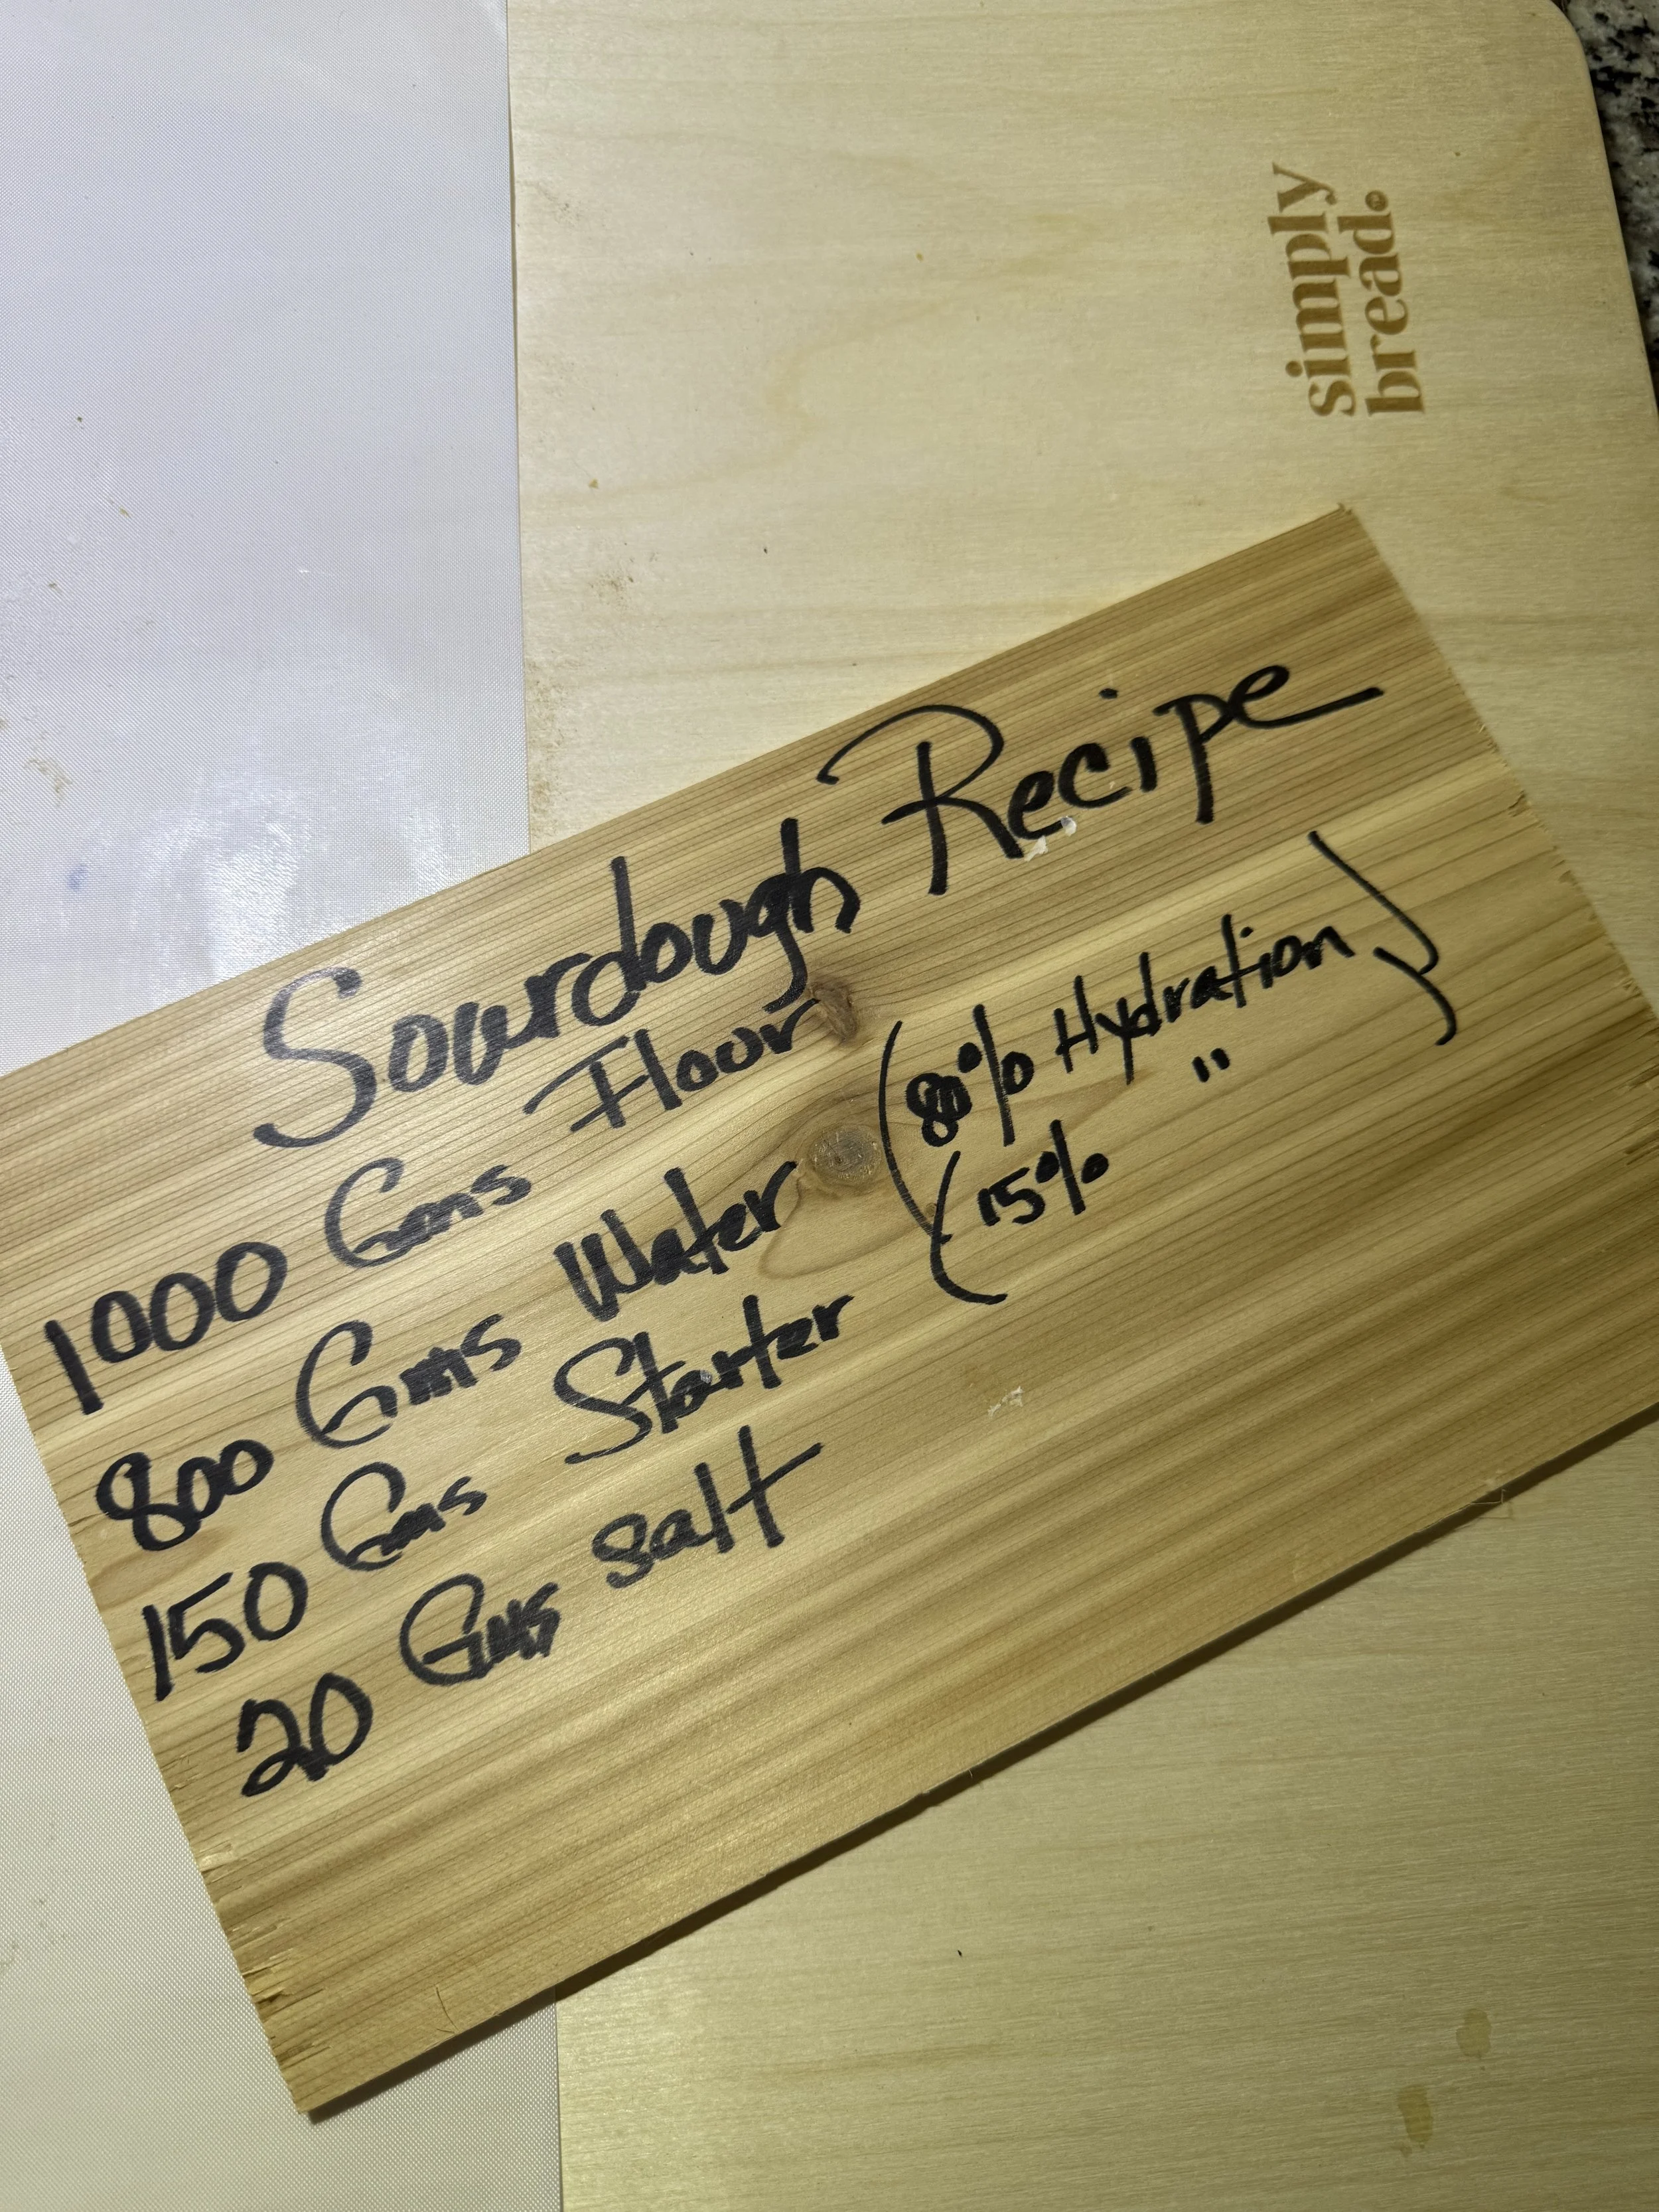 simply
bread.
Sourdough Recipe
1000 Gms Flour
800 Gms Water (80% Hydration)
150 Gms Starter (15% " )
20 Gms salt